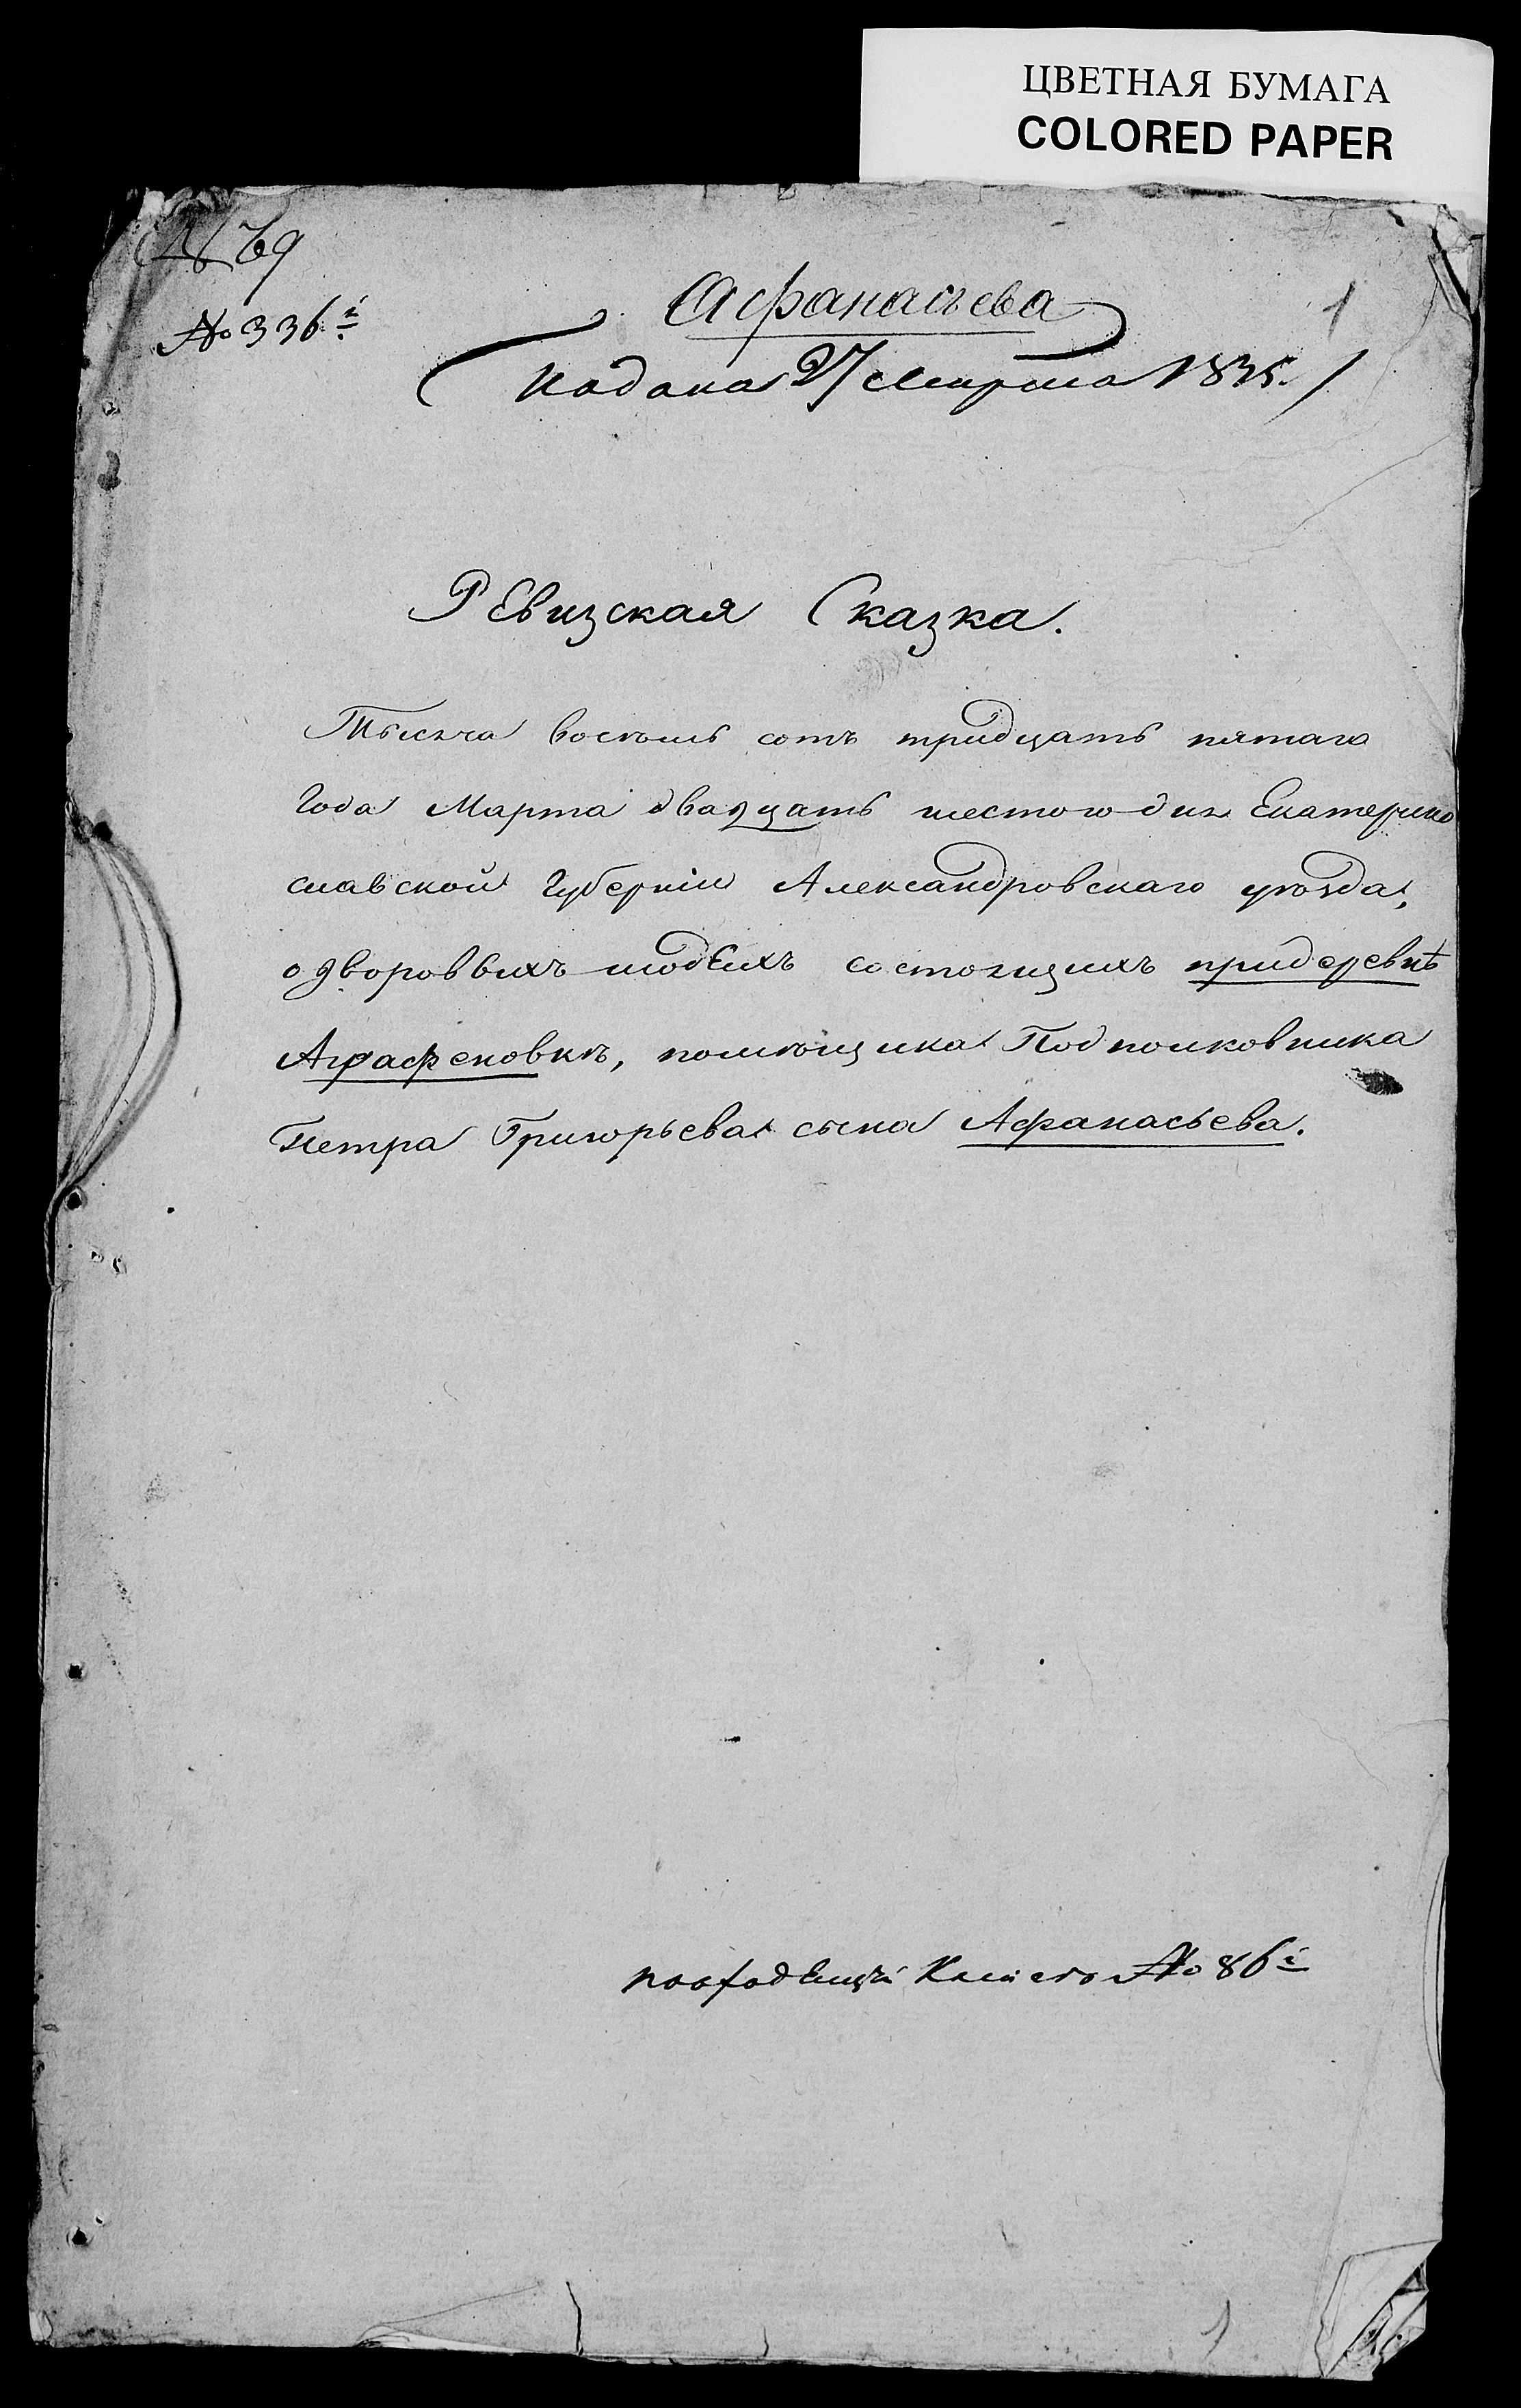 ЦВЕТНАЯ БУМАГА
COLORED PAPER
№ 69
№ 336й
Афанасьева
1
Подана 27 Марта 1835.
Ревизская Сказка.
Тысяча восемь сотъ тридцать пятаго
Года Марта двадцать шестого дня Екатерино
славской Губерніи Александровскаго уѣзда,
о дворовыхъ людѣхъ состоящихъ при деревнѣ
Аграфеновкѣ, помѣщика Подполковника
Петра Григорьева сына Афанасьева.
№ 86й
1